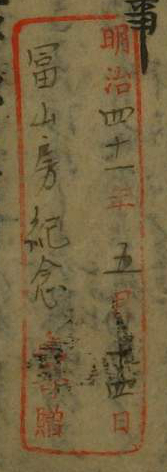 事
明治四十一年五月十四日
冨山房紀念寄贈